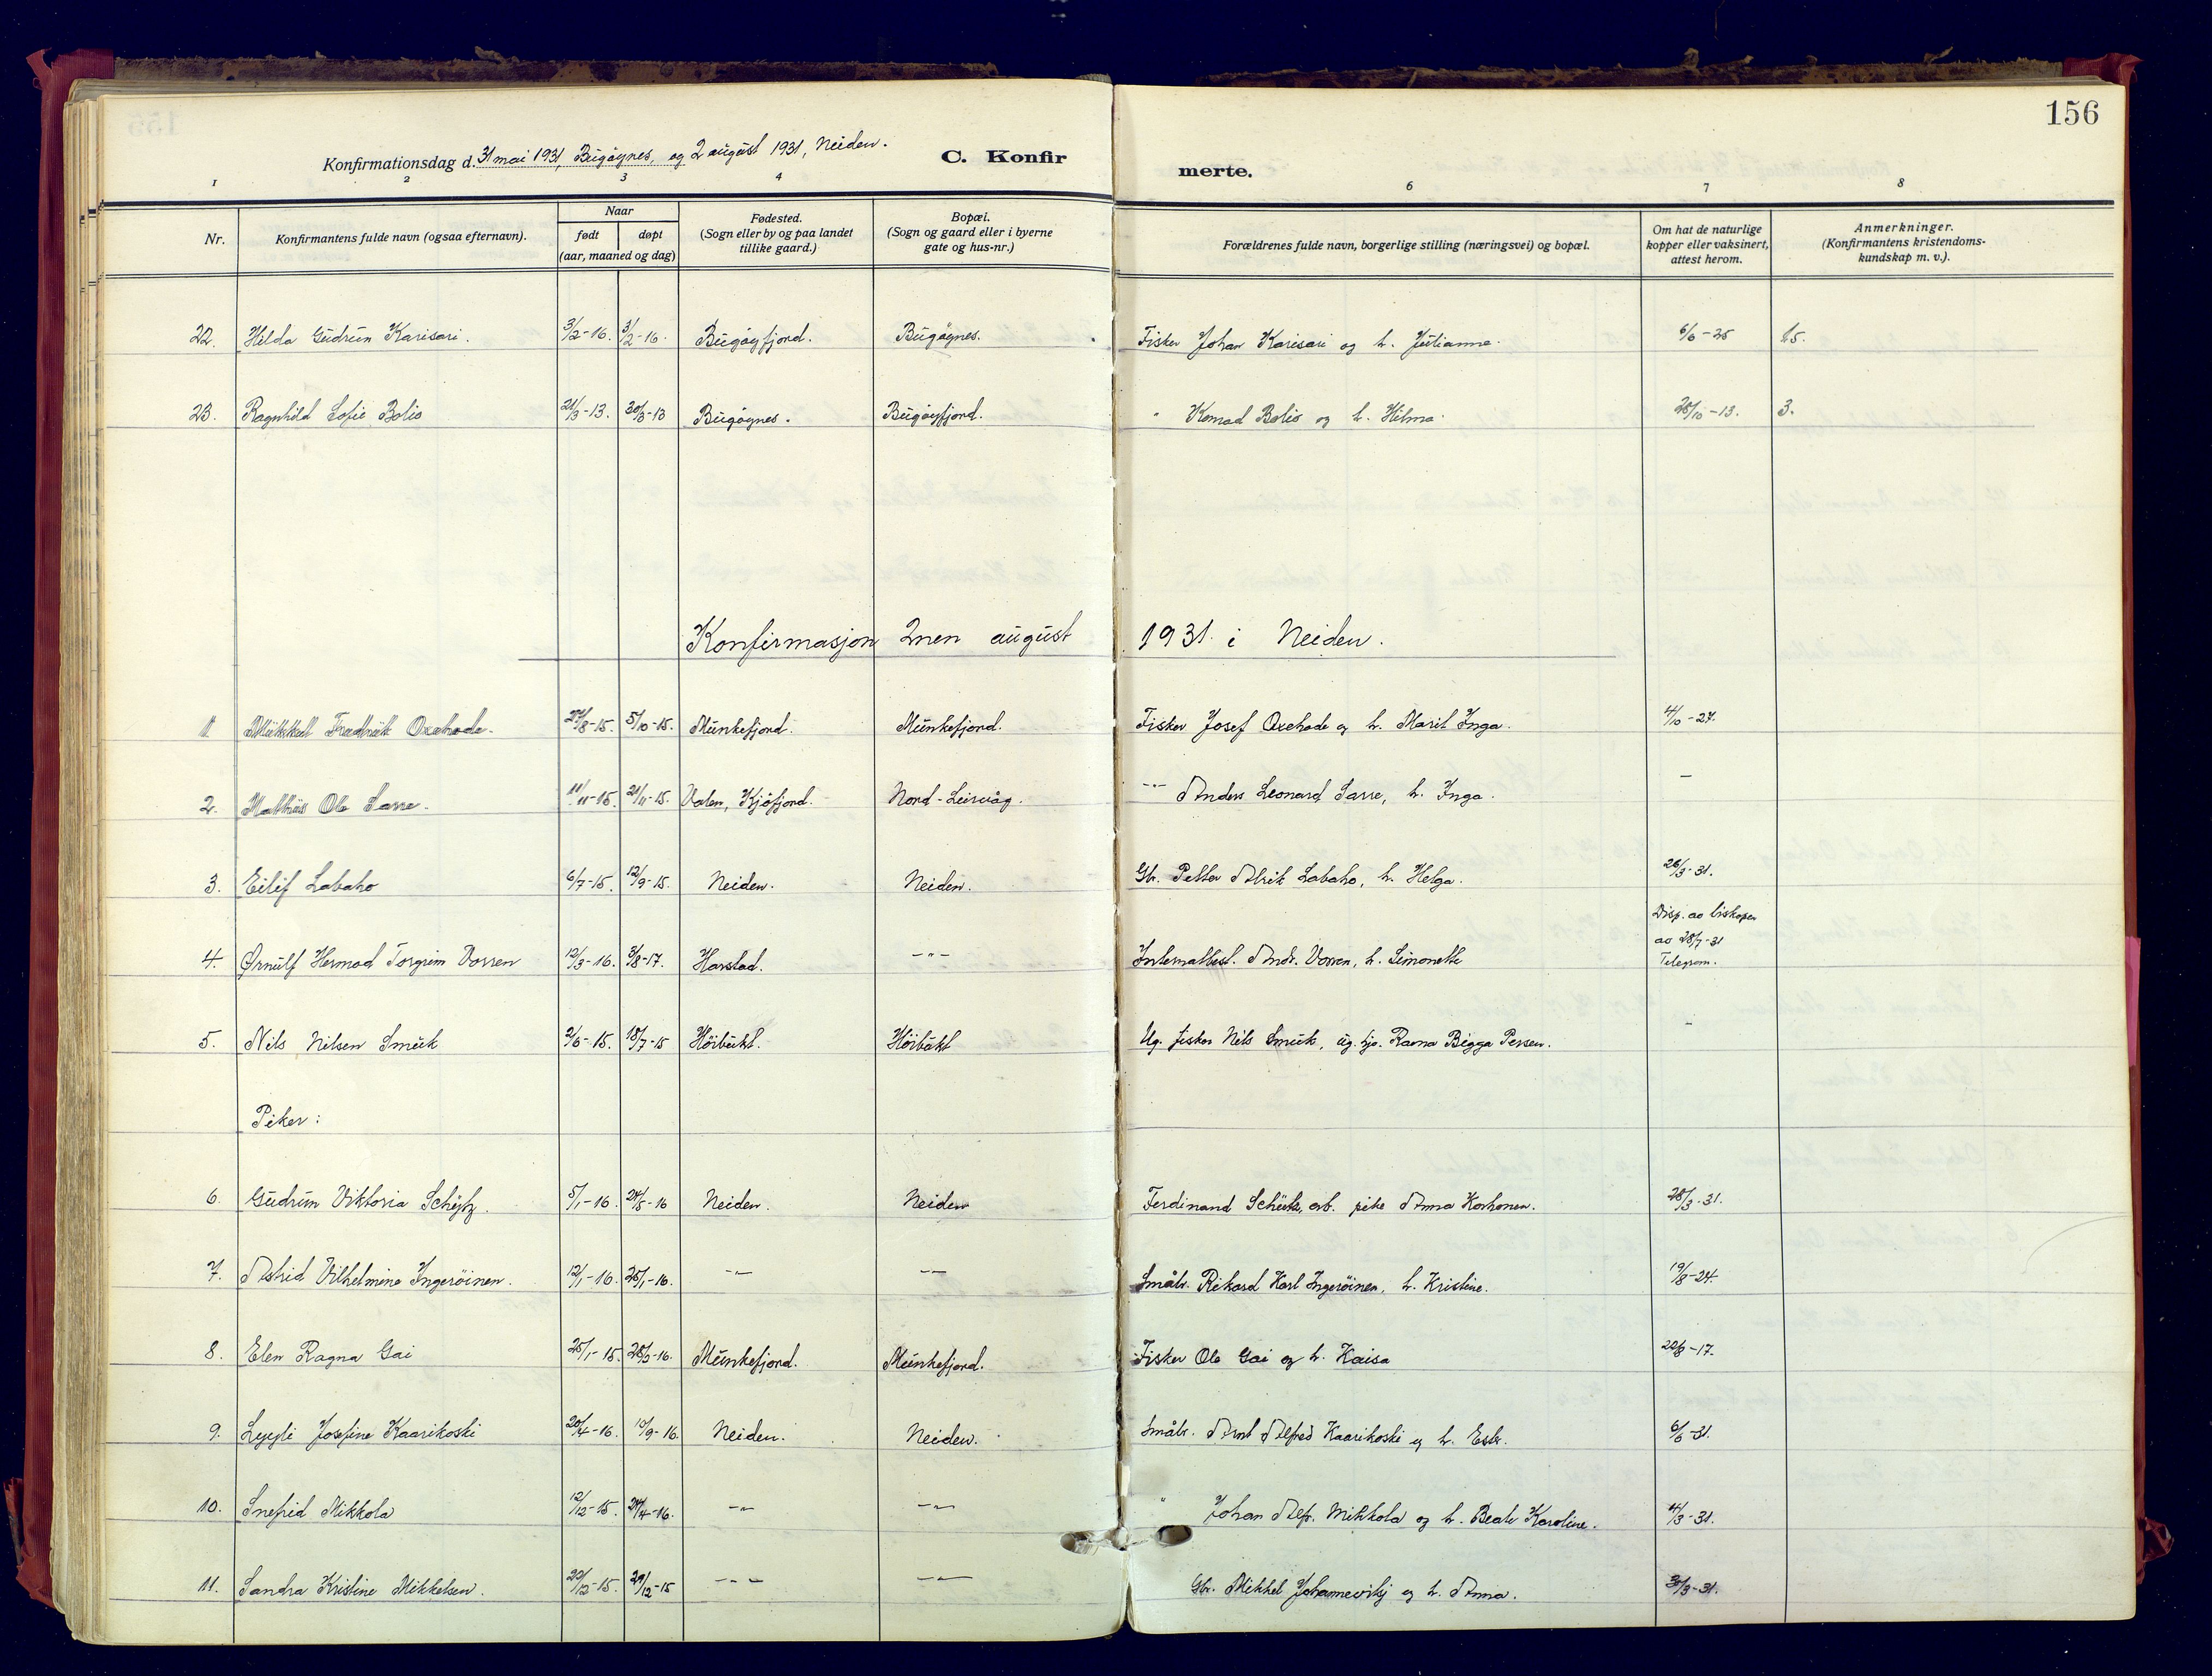 156
Konfirmationsdag d. 31 mai 1931, Bugöynes, og 2 august 1931, Neiden.
C. Konfirmerte.
1 2 3 4 6 7 8
Nr. Konfirmantens fulde navn (ogsaa efternavn). Naar født døpt (aar, maaned og dag) Fødested. (Sogn eller by og paa landet tillike gaard.) Bopæl. (Sogn og gaard eller i byerne gate og hus-nr.) Forældrenes fulde navn, borgerlige stilling (næringsvei) og bopæl. Om hat de naturlige kopper eller vaksinert, attest herom. Anmerkninger. (Konfirmantens kristendoms-kundskap m. v.).
22. Hilda Gudrun Karisari. 3/2-16. 3/2-16. Bugöyfjord. Bugöynes. Fisker Johan Karisari og h. Julianne. 6/6-25 15.
23. Ragnhild Sofie Bolis 21/3-13. 30/3-13 Bugöynes. Bugöyfjord. " Konrad Bolis og h. Hilma. 28/10-13. 3.
Konfirmasjon 2nen august 1931 i Neiden.
1 Mikkel Fredrik Oxehode. /8-15. 5/10-15. Munkefjord. Munkefjord. Fisker Josef Oxehode og h. Marit Inga. 4/10-27.
2. Mathis Ole Sarre. 11/11-15. 21/11-15. Valen, Kjöfjord. Nord-Leirvåg. -"- Anders Leonard Sarre, h. Inga. -
3. Eilif Labaho 6/7-15. 12/9-15. Neiden. Neiden. Gbr. Petter Alrik Labaho, h. Helga. 26/3-31.
4. Ørnulf Hermod Torgrim Vorren 12/3-16. 3/8-17. Harstad. -"- Internatbest. Andr. Vorren, h. Simonette Disp. av biskopen av 28/7-31 Telegram.
5. Nils Nilsen Smuk 2/6-15. 18/7-15 Höibukt. Höibukt Ug. fisker Nils Smuk, ug. tj. Ravna Bigga Persen. -
Piker:
6. Gudrun Viktoria Schytz. 5/1-16. 24/5-16 Neiden. Neiden Ferdinand Schütz, arb. pike Anna Korhonen. 28/3-31.
7. Astrid Vilhelmine Ingeröinen. 12/1-16. 25/1-16. -"- -"- Småbr. Rikard Karl Ingeröinen, h. Kristine. 19/8-24.
8. Elen Ragna Gai 25/1-15. 28/3-16. Munkefjord. Munkefjord. Fisker Ole Gai og h. Kaisa 22/8-17.
9. Lyyli Josefine Kaarikoski 20/4-16. 10/9-16. Neiden. Neiden. Småbr. Arnt Alfred Kaarikoski og h. Ester. 6/6-31.
10. Snefrid Mikkola 12/12-15. 24/4-16. -"- -"- " Johan Alfr. Mikkola og h. Beate Karoline. 4/3-31.
11. Sandra Kristine Mikkelsen. 20/12-15. 29/12-15 -"- -"- Gbr. Mikkel Johannevitsj og h. Anna. 30/3-31.